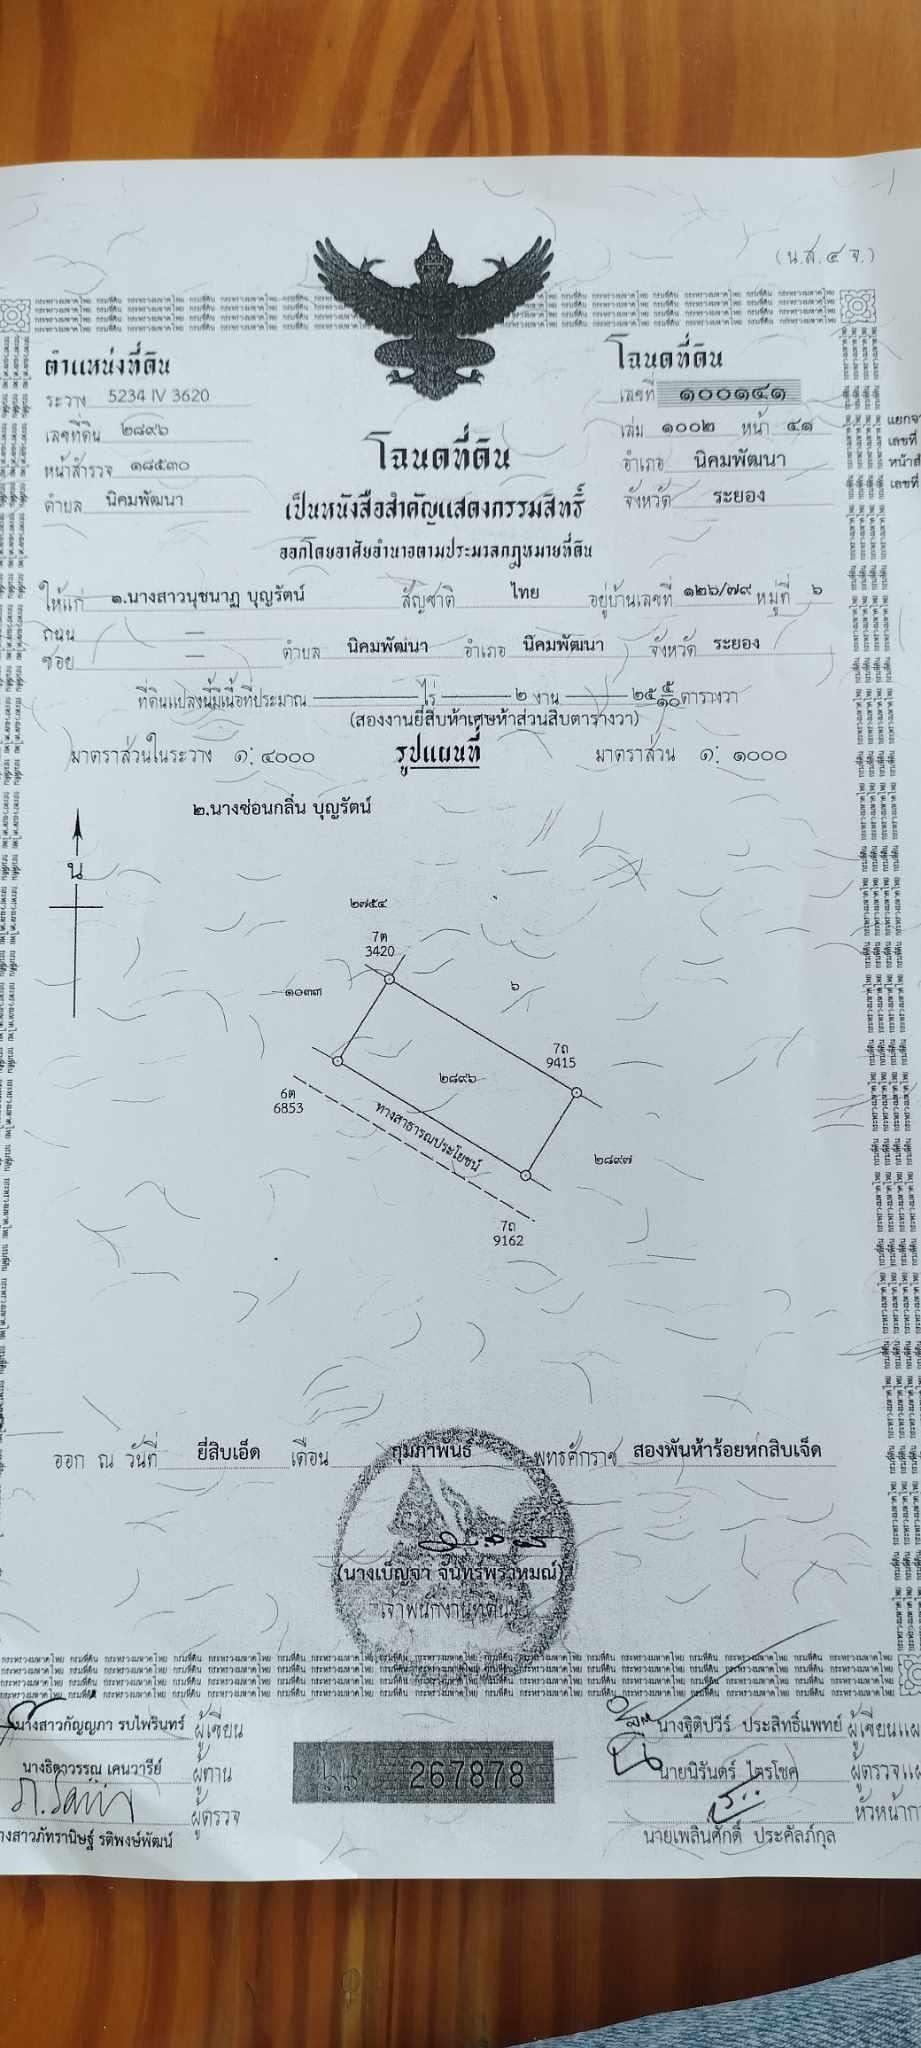 (น.ส.๔ จ.)
ตำแหน่งที่ดิน
ระวาง 5234 IV 3620
เลขที่ดิน ๒๘๙๖
หน้าสำรวจ ๑๘๕๓๐
ตำบล นิคมพัฒนา
โฉนดที่ดิน
เลขที่ ๑๐๐๑๔๑
เล่ม ๑๐๐๒ หน้า ๔๑
อำเภอ นิคมพัฒนา
จังหวัด ระยอง
เลขที่
เลขที่
โฉนดที่ดิน
เป็นหนังสือสำคัญแสดงกรรมสิทธิ์
ออกโดยอาศัยอำนาจตามประมวลกฎหมายที่ดิน
ให้แก่ ๑.นางสาวนุชนาฏ บุญรัตน์ สัญชาติ ไทย อยู่บ้านเลขที่ ๑๒๖/๗๙ หมู่ที่ ๖
ถนน —
ซอย — ตำบล นิคมพัฒนา อำเภอ นิคมพัฒนา จังหวัด ระยอง
ที่ดินแปลงนี้มีเนื้อที่ประมาณ — ไร่ — ๒ งาน — ๒๕ ๕/๑๐ ตารางวา
(สองงานยี่สิบห้าเศษห้าส่วนสิบตารางวา)
มาตราส่วนในระวาง ๑: ๔๐๐๐ รูปแผนที่ มาตราส่วน ๑: ๑๐๐๐
๒.นางซ่อนกลิ่น บุญรัตน์
น
๒๗๕๔
7ต
3420
๑๐๓๓
๖
7ถ
9415
๒๘๙๖
6ต
6853
ทางสาธารณประโยชน์
๒๘๙๗
7ถ
9162
ออก ณ วันที่ ยี่สิบเอ็ด เดือน กุมภาพันธ์ พุทธศักราช สองพันห้าร้อยหกสิบเจ็ด
(นางเบ็ญจา จันทร์พราหมณ์)
เจ้าพนักงานที่ดิน
นางสาวกัญญภา รบไพรินทร์ ผู้เขียน
นางธิดาวรรณ เคนวารีย์ ผู้ทาน
ผู้ตรวจ
นางสาวภัทรานิษฐ์ รติพงษ์พัฒน์
๖๖ 267878
นางฐิติปวีร์ ประสิทธิ์แพทย์ ผู้เขียนแผ
นายนิรันดร์ ไตรโชค ผู้ตรวจแผ
หัวหน้าก
นายเพลินศักดิ์ ประคัลภ์กุล